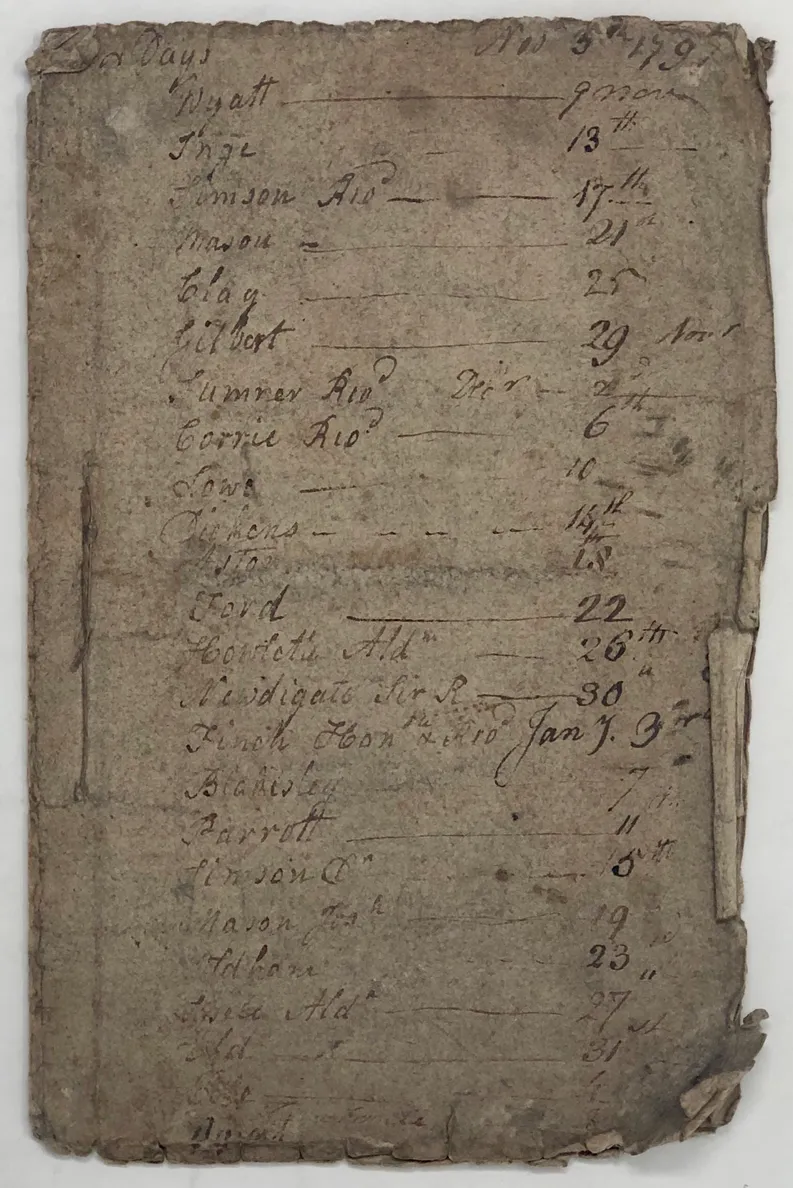 Days Nov 5th 179
Wyatt 9 Nov
Inge 13th
Simson Rd 17th
Mason 21st
Clay 25
Gilbert 29 Novr
Sumner Rd Decr 2d
Corrie Rd 6th
Lowe 10
Dickens 14th
Aston 18th
Ford 22
Howlette Aldn 26th
Newdigate Sir R 30
Finch Honble & Rd Jany. 3rd
Blakesley 7
Parrott 11
Simson Dr 15th
Mason Josh 19
Oldham 23
Aldn 27
Old 31st